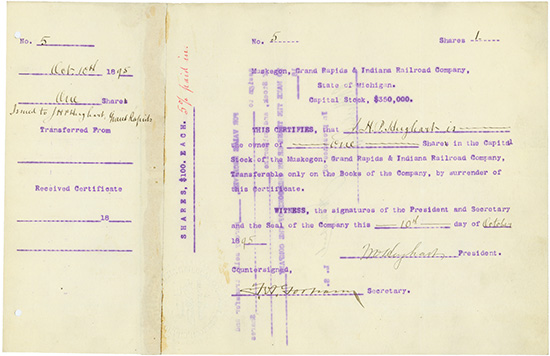 No. 5
Oct. 10th 1895
One Share
Issued to J.H.P. Hughart, Grand Rapids
Transferred From
Received Certificate
18
SHARES, $100. EACH.
5% paid in.
No. 5 Shares 1
Muskegon, Grand Rapids & Indiana Railroad Company,
State of Michigan.
Capital Stock, $350,000.
THIS CERTIFIES, that J.H.P. Hughart is
the owner of One Share in the Capital
Stock of the Muskegon, Grand Rapids & Indiana Railroad Company,
Transferable only on the Books of the Company, by surrender of
this Certificate.
WITNESS, the signatures of the President and Secretary
and the Seal of the Company this 10th day of October
1895
Wm Hughart President.
Countersigned,
Secretary.